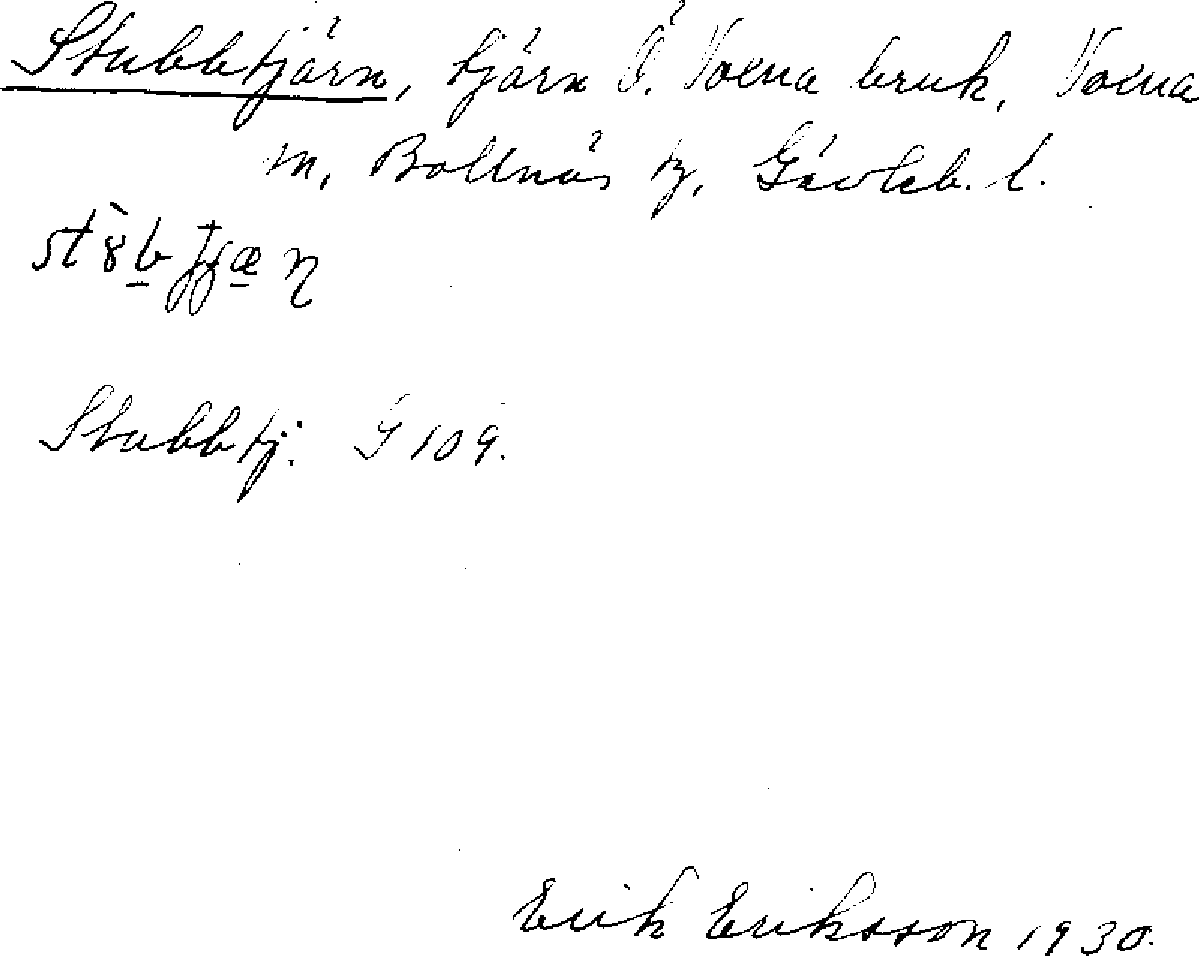 Stubbtjärn, tjärn Ö. Voxna bruk, Voxna
m, Bollnäs tg, Gävleb. l.
Stubbtj. G 109.
Erik Eriksson 1930.